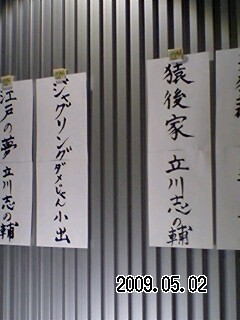 猿後家 立川志の輔
ジャグリング ダメじゃん小出
江戸の夢 立川志の輔
2009.05.02